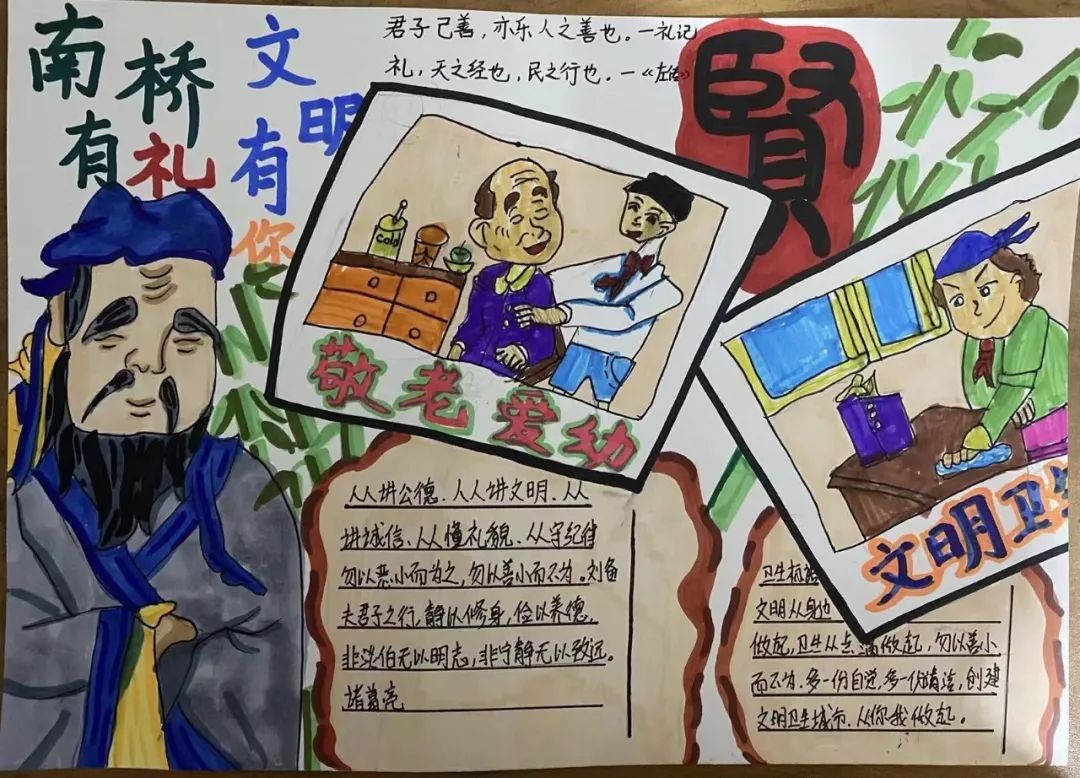 南桥
有礼
文明
有你
君子己善，亦乐人之善也。一礼记
礼，天之经也，民之行也。一《左传》
賢
Cold
敬老爱幼
人人讲公德、人人讲文明、人人
讲诚信、人人懂礼貌、人人守纪律
勿以恶小而为之，勿以善小而不为。刘备
夫君子之行，静以修身，俭以养德，
非淡伯无以明志，非宁静无以致远。
诸葛亮
文明卫生
卫生
文明从身边
做起，卫生从点滴做起，勿以善小
而不为，多一份自觉，多一份清洁，创建
文明卫生城市、从你我做起。